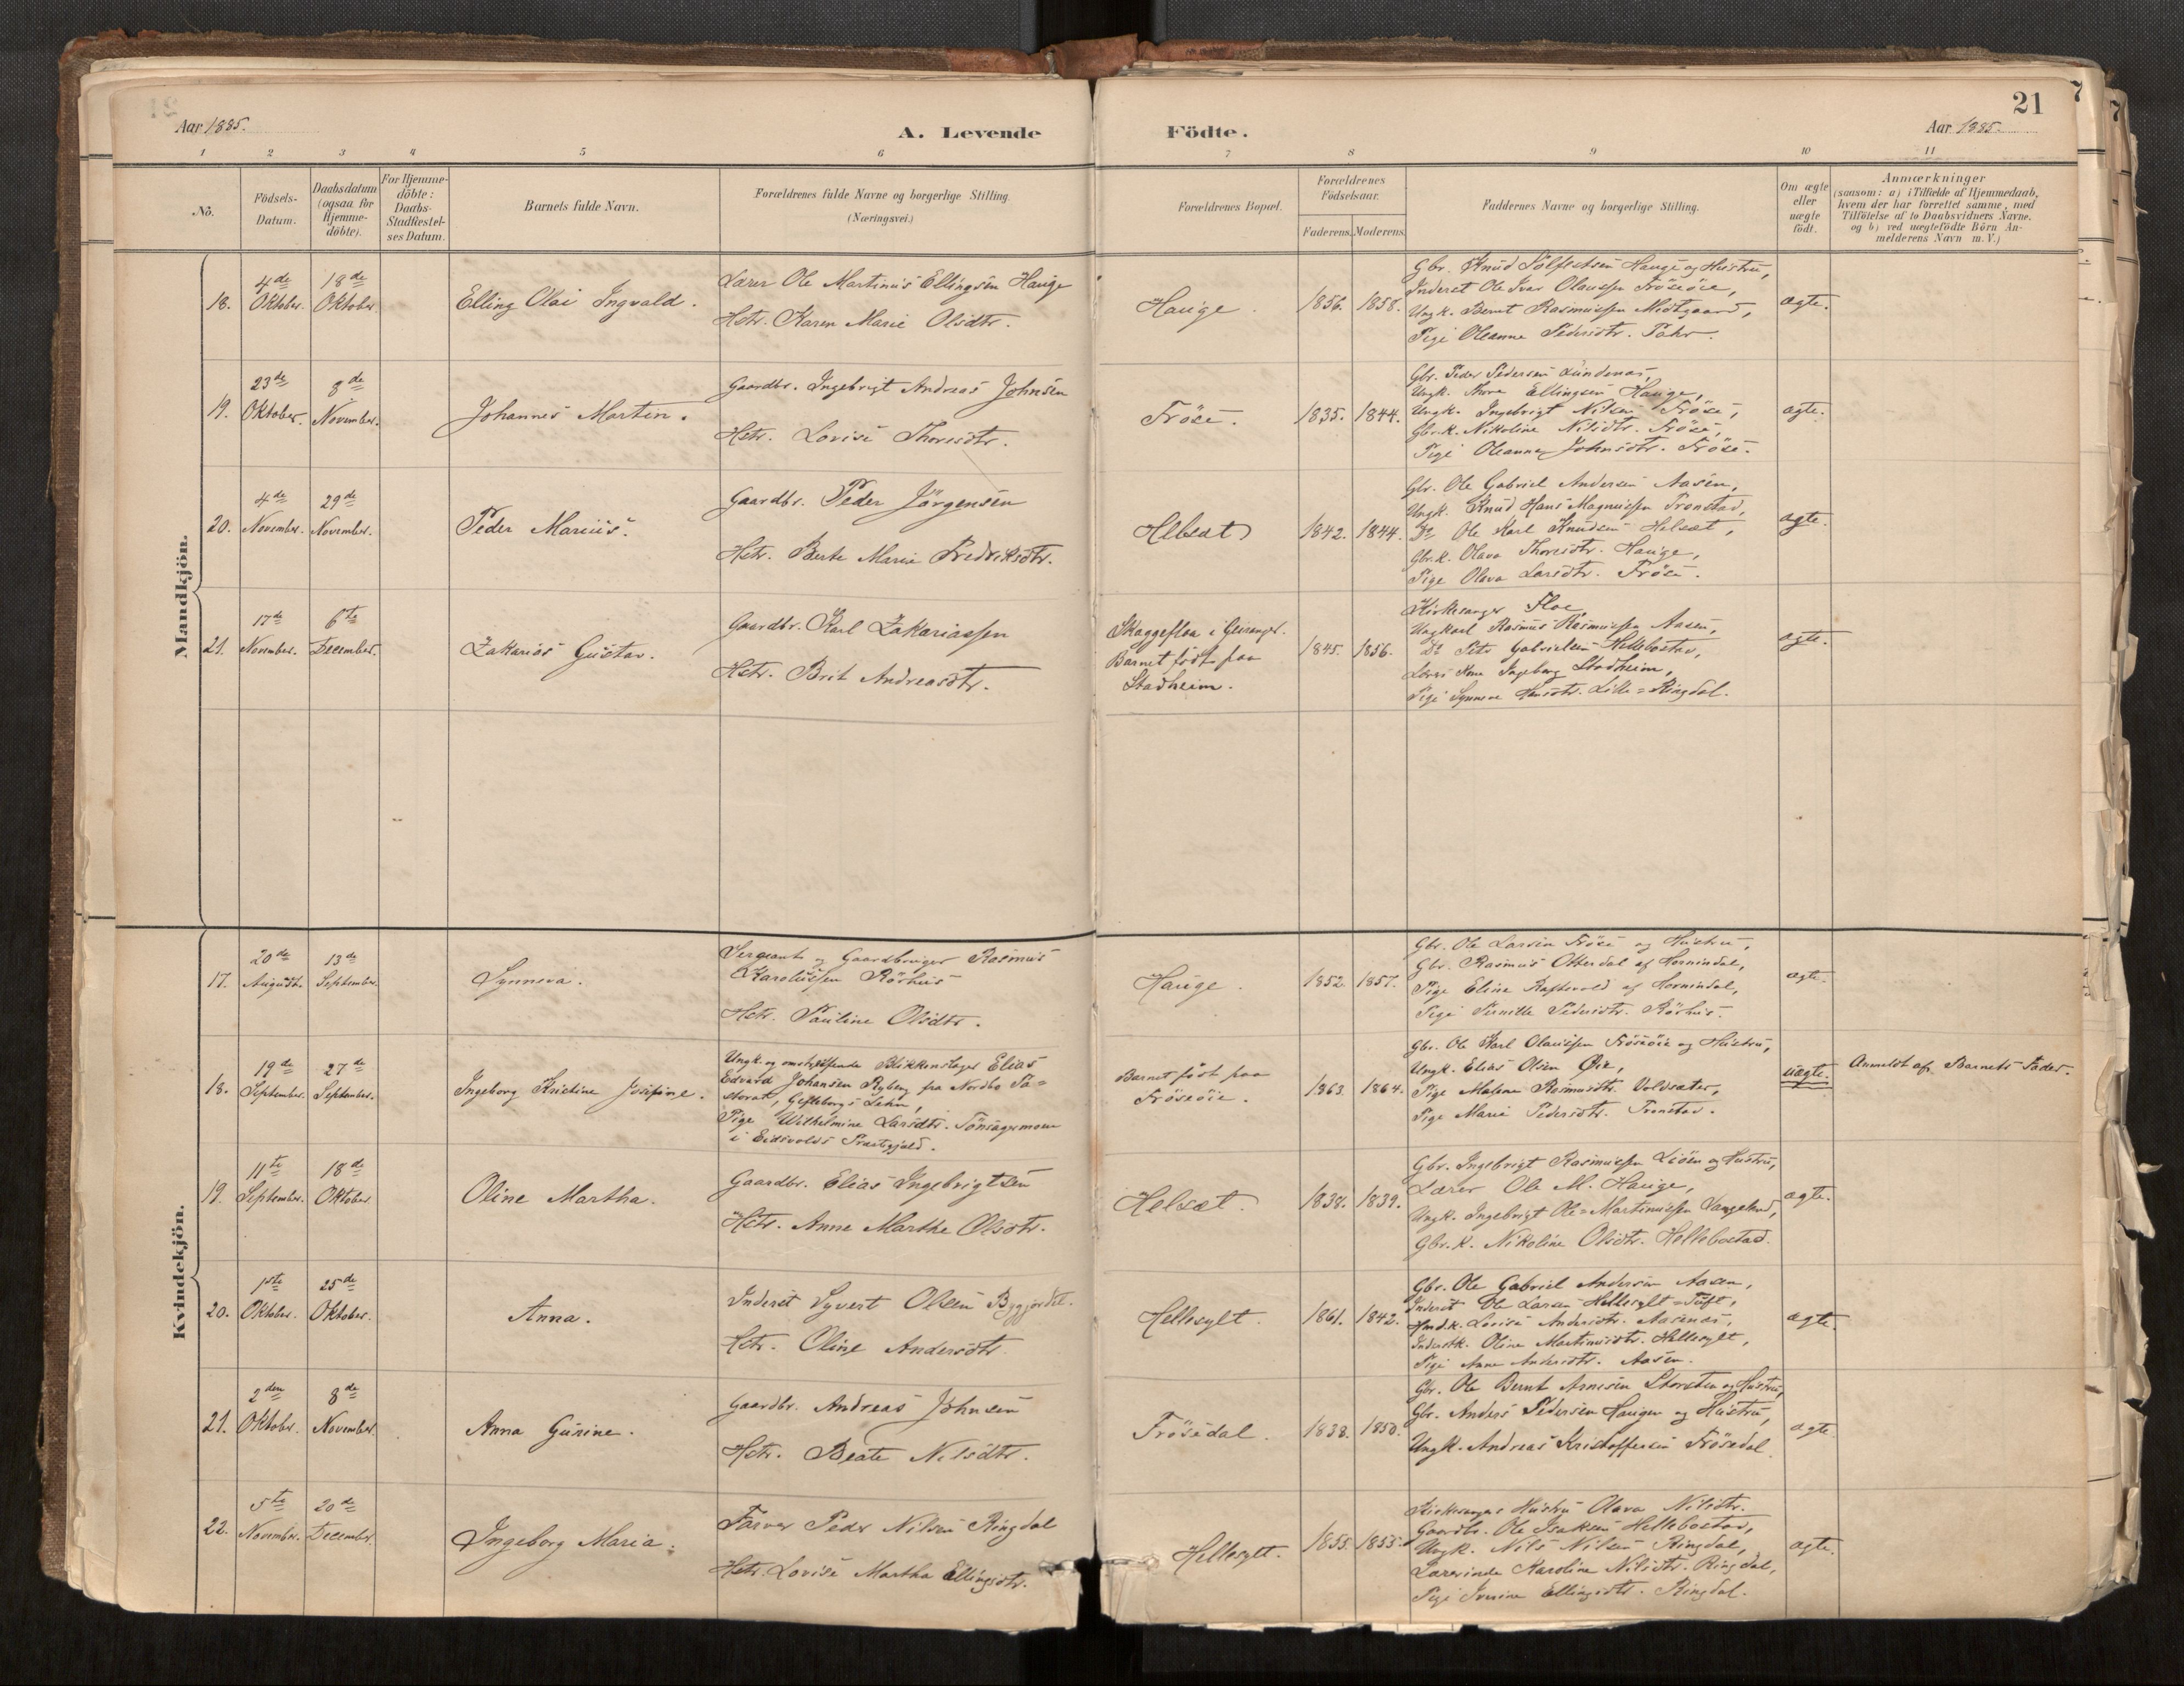 21
Aar 1885.
A. Levende Födte.
Aar 1885.
1 2 3 4 5 6 7 8 9 10 11
No.
Födsels-
Datum.
Daabsdatum
(ogsaa for
Hjemme-
döbte).
For Hjemme-
döbte:
Daabs-
Stadfæstel-
ses Datum.
Barnets fulde Navn.
Forældrenes fulde Navne og borgerlige Stilling.
(Næringsvei.)
Forældrenes Bopæl.
Forældrenes
Födselsaar.
Faderens. Moderens.
Faddernes Navne og borgerlige Stilling.
Om ægte
eller
uægte
födt.
Anmærkninger
(saasom: a) i Tilfælde af Hjemmedaab,
hvem der har forrettet samme, med
Tilföielse af to Daabsvidners Navne.
og b) ved uægtefödte Börn An-
melderens Navn m. V.)
Mandkjön.
18.
4de
Oktober.
18de
Oktober
Elling Olai Ingvald.
Lærer Ole Martinus Ellingsen Hauge
Hstr. Karen Marie Olsdtr.
Hauge.
1856. 1858.
Gbr. Knud Sölfestsen Hauge og Hustru,
Inderst Ole Ivar Olaussen Fröseöie,
Ungk. Bernt Rasmussen Midtgaard,
Pige Oleanna Pedersdtr.
ægte.
19.
23de
Oktober.
8de
November.
Johannes Martin.
Gaardbr. Ingebrigt Andreas Johnsen
Hstr. Lovise Thoresdtr.
Fröse.
1835. 1844.
Gbr. Peder Pedersen Lundenæs,
Ungk. Thore Ellingsen Hauge,
Ungk. Ingebrigt Nilsen Fröse,
Gbr.k. Nikoline Nilsdtr. Fröse,
Pige Oleanna Johnsdtr. Fröse.
ægte.
20.
4de
November.
29de
November.
Peder Marius.
Gaardbr. Peder Jörgensen
Hstr. Berte Marie Fredriksdtr.
Helsæt
1842. 1844.
Gbr. Ole Gabriel Andersen Aasen,
Ungk. Knud Hans Magnussen Tronstad,
Do Ole Karl Knudsen Helsæt,
Gbr.k. Olava Thoresdtr. Hauge,
Pige Olava Larsdtr. Fröse.
ægte.
21.
17de
November.
6te
December.
Zakarias Gustav.
Gaardbr. Karl Zakariassen
Hstr. Brit Andreasdtr.
Skaggeflaa i Geiranger.
Barnet födt paa
Stadheim.
1845. 1856.
Kirkesanger Floe,
Ungkarl Rasmus Rasmussen Aasen,
Do Peter Gabrielsen Hellebostad,
Ingeborg Stadheim,
Pige Synneve Hansdtr. Lille=Ringdal.
ægte.
Kvindekjön.
17.
20de
August.
13de
September.
Synneva.
Sergeant og Gaardbruger Rasmus
Karolussen Rörhus
Hstr. Pauline Olsdtr.
Hauge.
1852. 1857.
Gbr. Ole Larsen Fröse og Hustru,
Gbr. Rasmus Otterdal af Hornindal,
Pige Eline Raftevold af Hornindal,
Pige Pernille Pedersdtr. Rörhus.
ægte.
18.
19de
September.
27de
September.
Ingeborg Kristine Josefine.
Ungk. og omstreifende Blikkenslager Elias
Edvard Johansen Ryberg fra Nordbo Pa=
storat, Gefleborgs Lehn,
Pige Wilhelmine Larsdtr. Tönsagermoen
i Eidsvolds Præstegjeld.
Barnet födt paa
Fröseöie.
1863. 1864.
Gbr. Ole Karl Olaussen Fröseöie og Hustru,
Ungk. Elias Olsen Öie,
Pige Malene Rasmusdtr. Voldsæter,
Pige Marie Pedersdtr. Tronstad.
uægte.
Anmeldt af Barnets Fader.
19.
11te
September.
18de
Oktober.
Oline Martha.
Gaardbr. Elias Ingebrigtsen
Hstr. Anne Marthe Olsdtr.
Helsæt.
1838. 1839.
Gbr. Ingebrigt Rasmussen Liöen og Hustru,
Lærer Ole M. Hauge,
Ungk. Ingebrigt Ole=Martinussen Langeland,
Gbr.k. Nikoline Olsdtr. Hellebostad.
ægte.
20.
1ste
Oktober.
25de
Oktober.
Anna.
Inderst Syvert Olsen Byggjerdet.
Hstr. Oline Andersdtr.
Hellesylt.
1861. 1842.
Gbr. Ole Gabriel Andersen Aasen,
Inderst Ole Larsen Hellesylt=Tuft,
Hmd.k. Lovise Andersdtr. Aasenæs,
Inderstk. Oline Martinusdtr. Hellesylt,
Pige Anne Andersdtr. Aasen.
ægte.
21.
2den
Oktober.
8de
November.
Anna Gurine.
Gaardbr. Andreas Johnsen
Hstr. Beate Nilsdtr.
Frösedal.
1838. 1850.
Gbr. Ole Bernt Arnesen Storsten og Hustru,
Gbr. Anders Pedersen Haugen og Hustru,
Ungk. Andreas Kristoffersen Frösedal.
ægte.
22.
5te
November.
20de
December.
Ingeborg Maria.
Farver Peder Nilsen Ringdal
Hstr. Lovise Martha Ellingsdtr.
Hellesylt.
1855. 1855.
Kirkesanger Hustru Olava Nilsdtr.
Gaardbr. Ole Isaksen Hellebostad,
Ungk. Nils Nilsen Ringdal,
Lærerinde Karoline Nilsdtr. Ringdal,
Pige Iverine Ellingsdtr. Ringdal.
ægte.